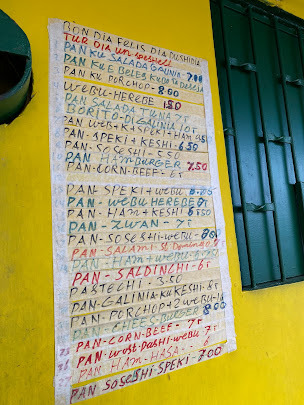 BON DIA FELIS DIA DUSHIDIA
TUR DIA un weshell
PAN KU SALADA GALINIA - 7.00
PAN KUE BELES KUBO TA DESEA
PAN KU PORCHOP - 8.00
WEBU - HEREBE 1.50
PAN SALADA TUNA 7 f
BORITO - DI GALINIA 10 f
PAN WEBU + SPEKI + HAM
PAN - SPEKI + KESHI - 6.50
PAN - SOSESHI - 5.50
PAN HAMBURGER 7.50
PAN - CORN - BEEF - 6 f
PAN - SPEKI + WEBU
PAN - WEBU HEREBE 6 f
PAN - HAM + KESHI 6 f 50
PAN - ZWAN - 7 f
PAN - SOSESHI - WEBU - 8.00
PAN - SALAMI - St. Domingo
PAN - HAM + WEBU -
PAN - SALDINCHI - 6 f
PASTECHI - 3.50
PAN - GALINIA - KU KESHI - 8 f
PAN - PORCHOP + 2 WEBU - 10
PAN - CHEES - BURGER 8.00
PAN - CORN - BEEF - 7 f
PAN - WORST - DASHI - WEBU 7 f
PAN - HAM - HASA - 6
PAN SOSESHI - SPEKI - 7.00